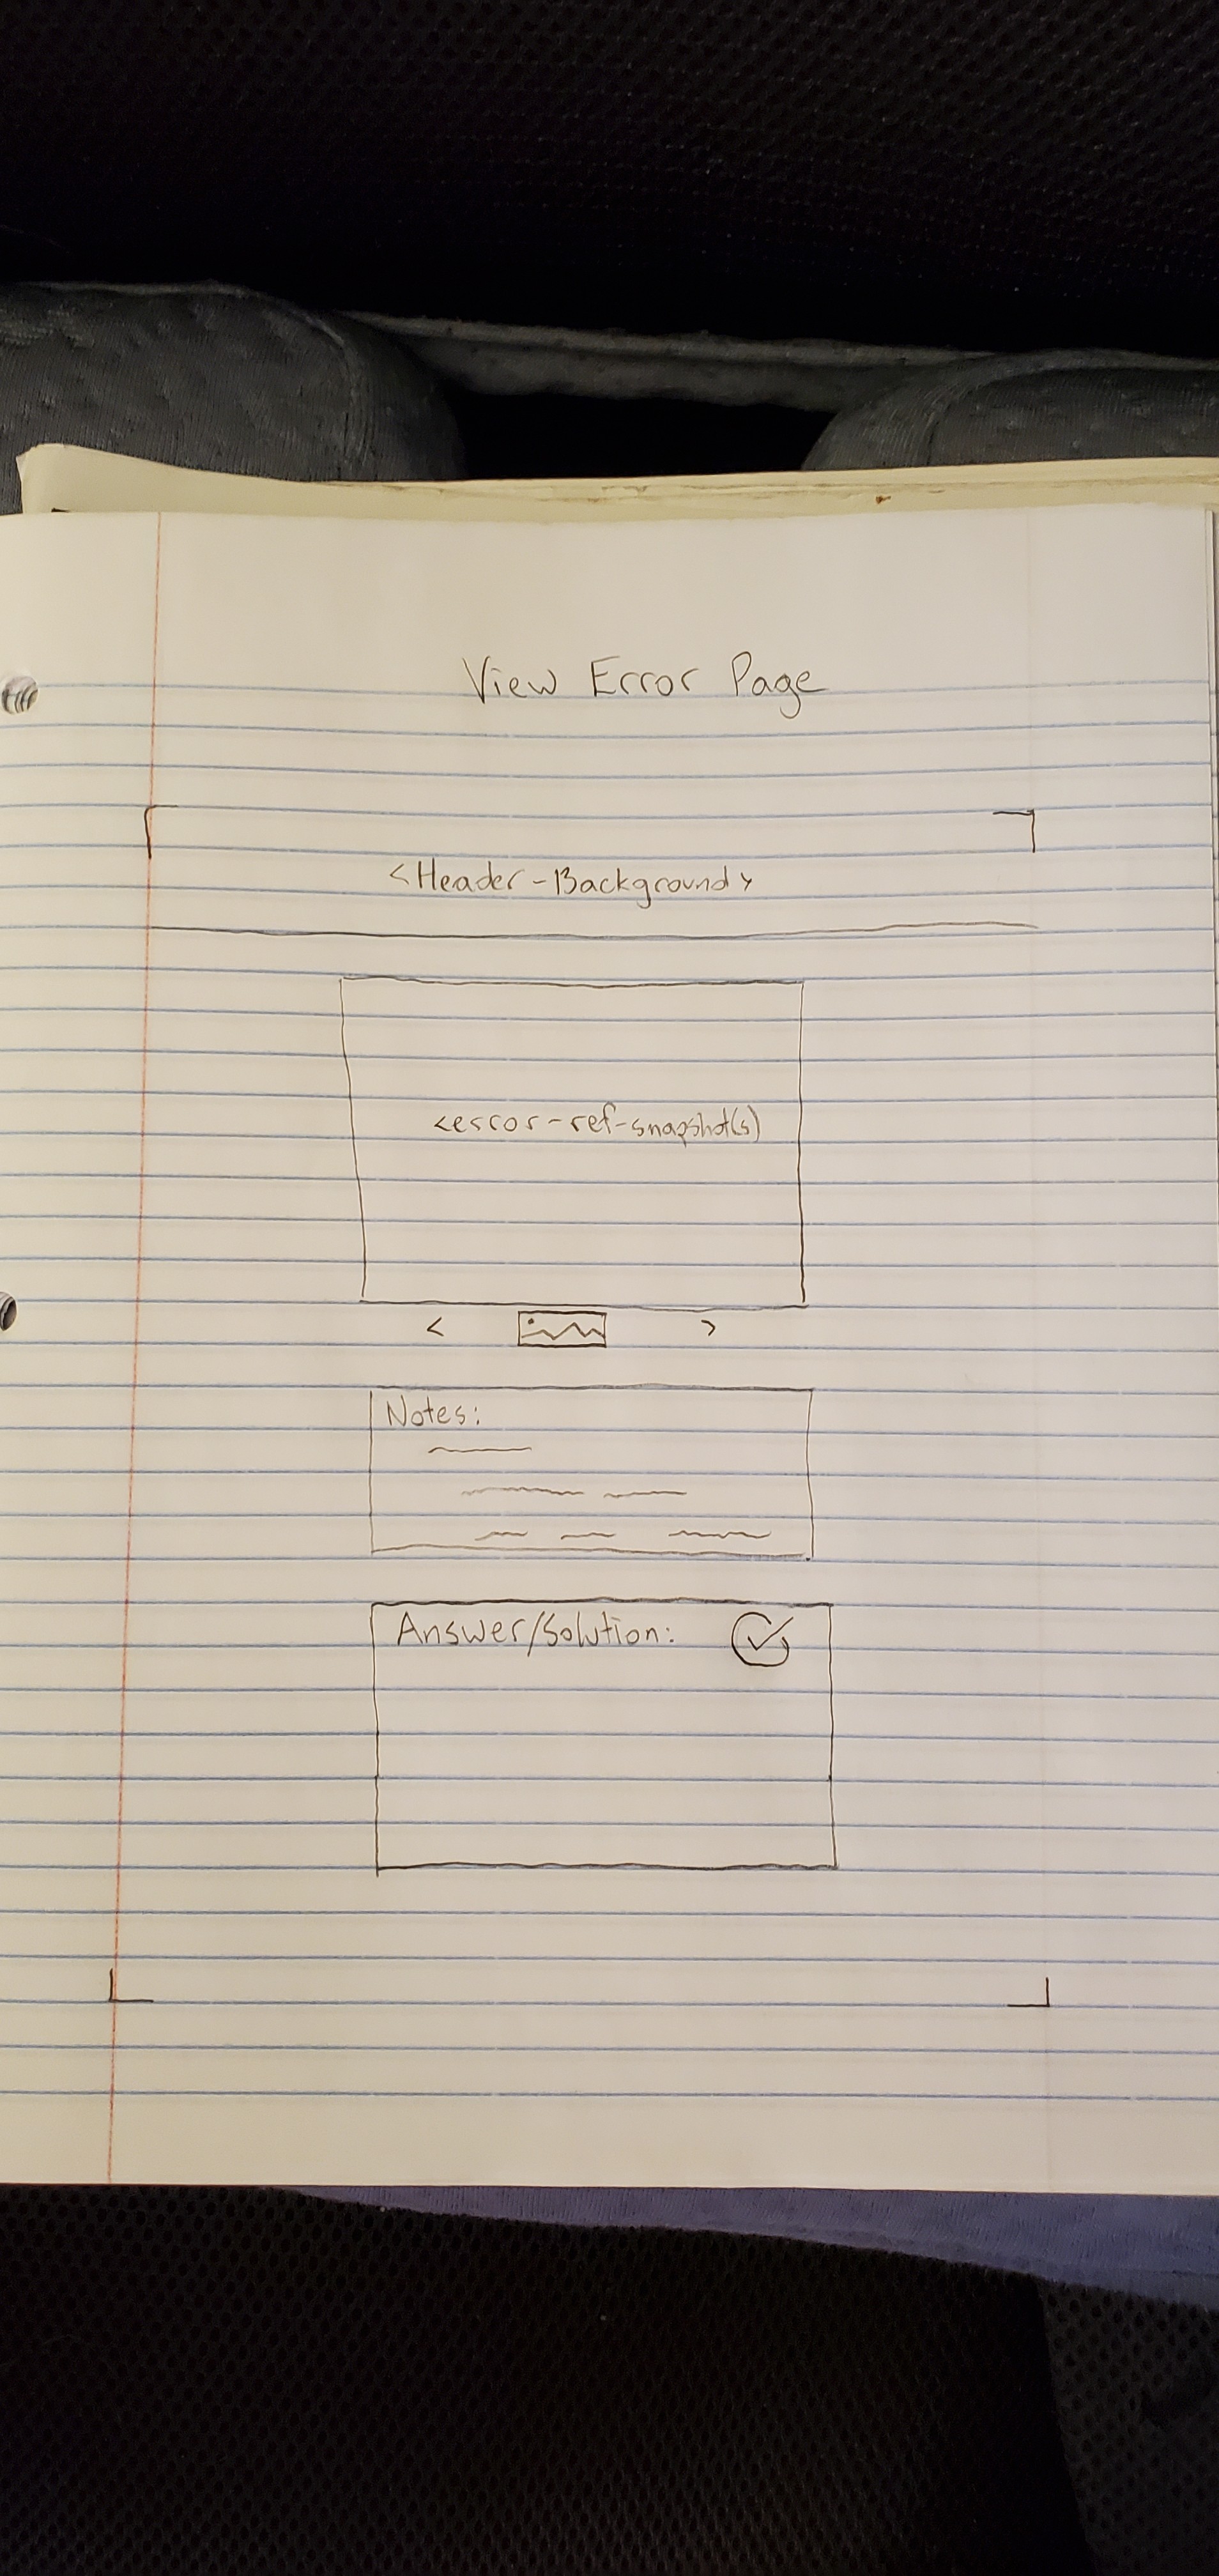 View Error Page
<Header-Background>
<error-ref-snapshot(s)
< >
Notes:
Answer/Solution: